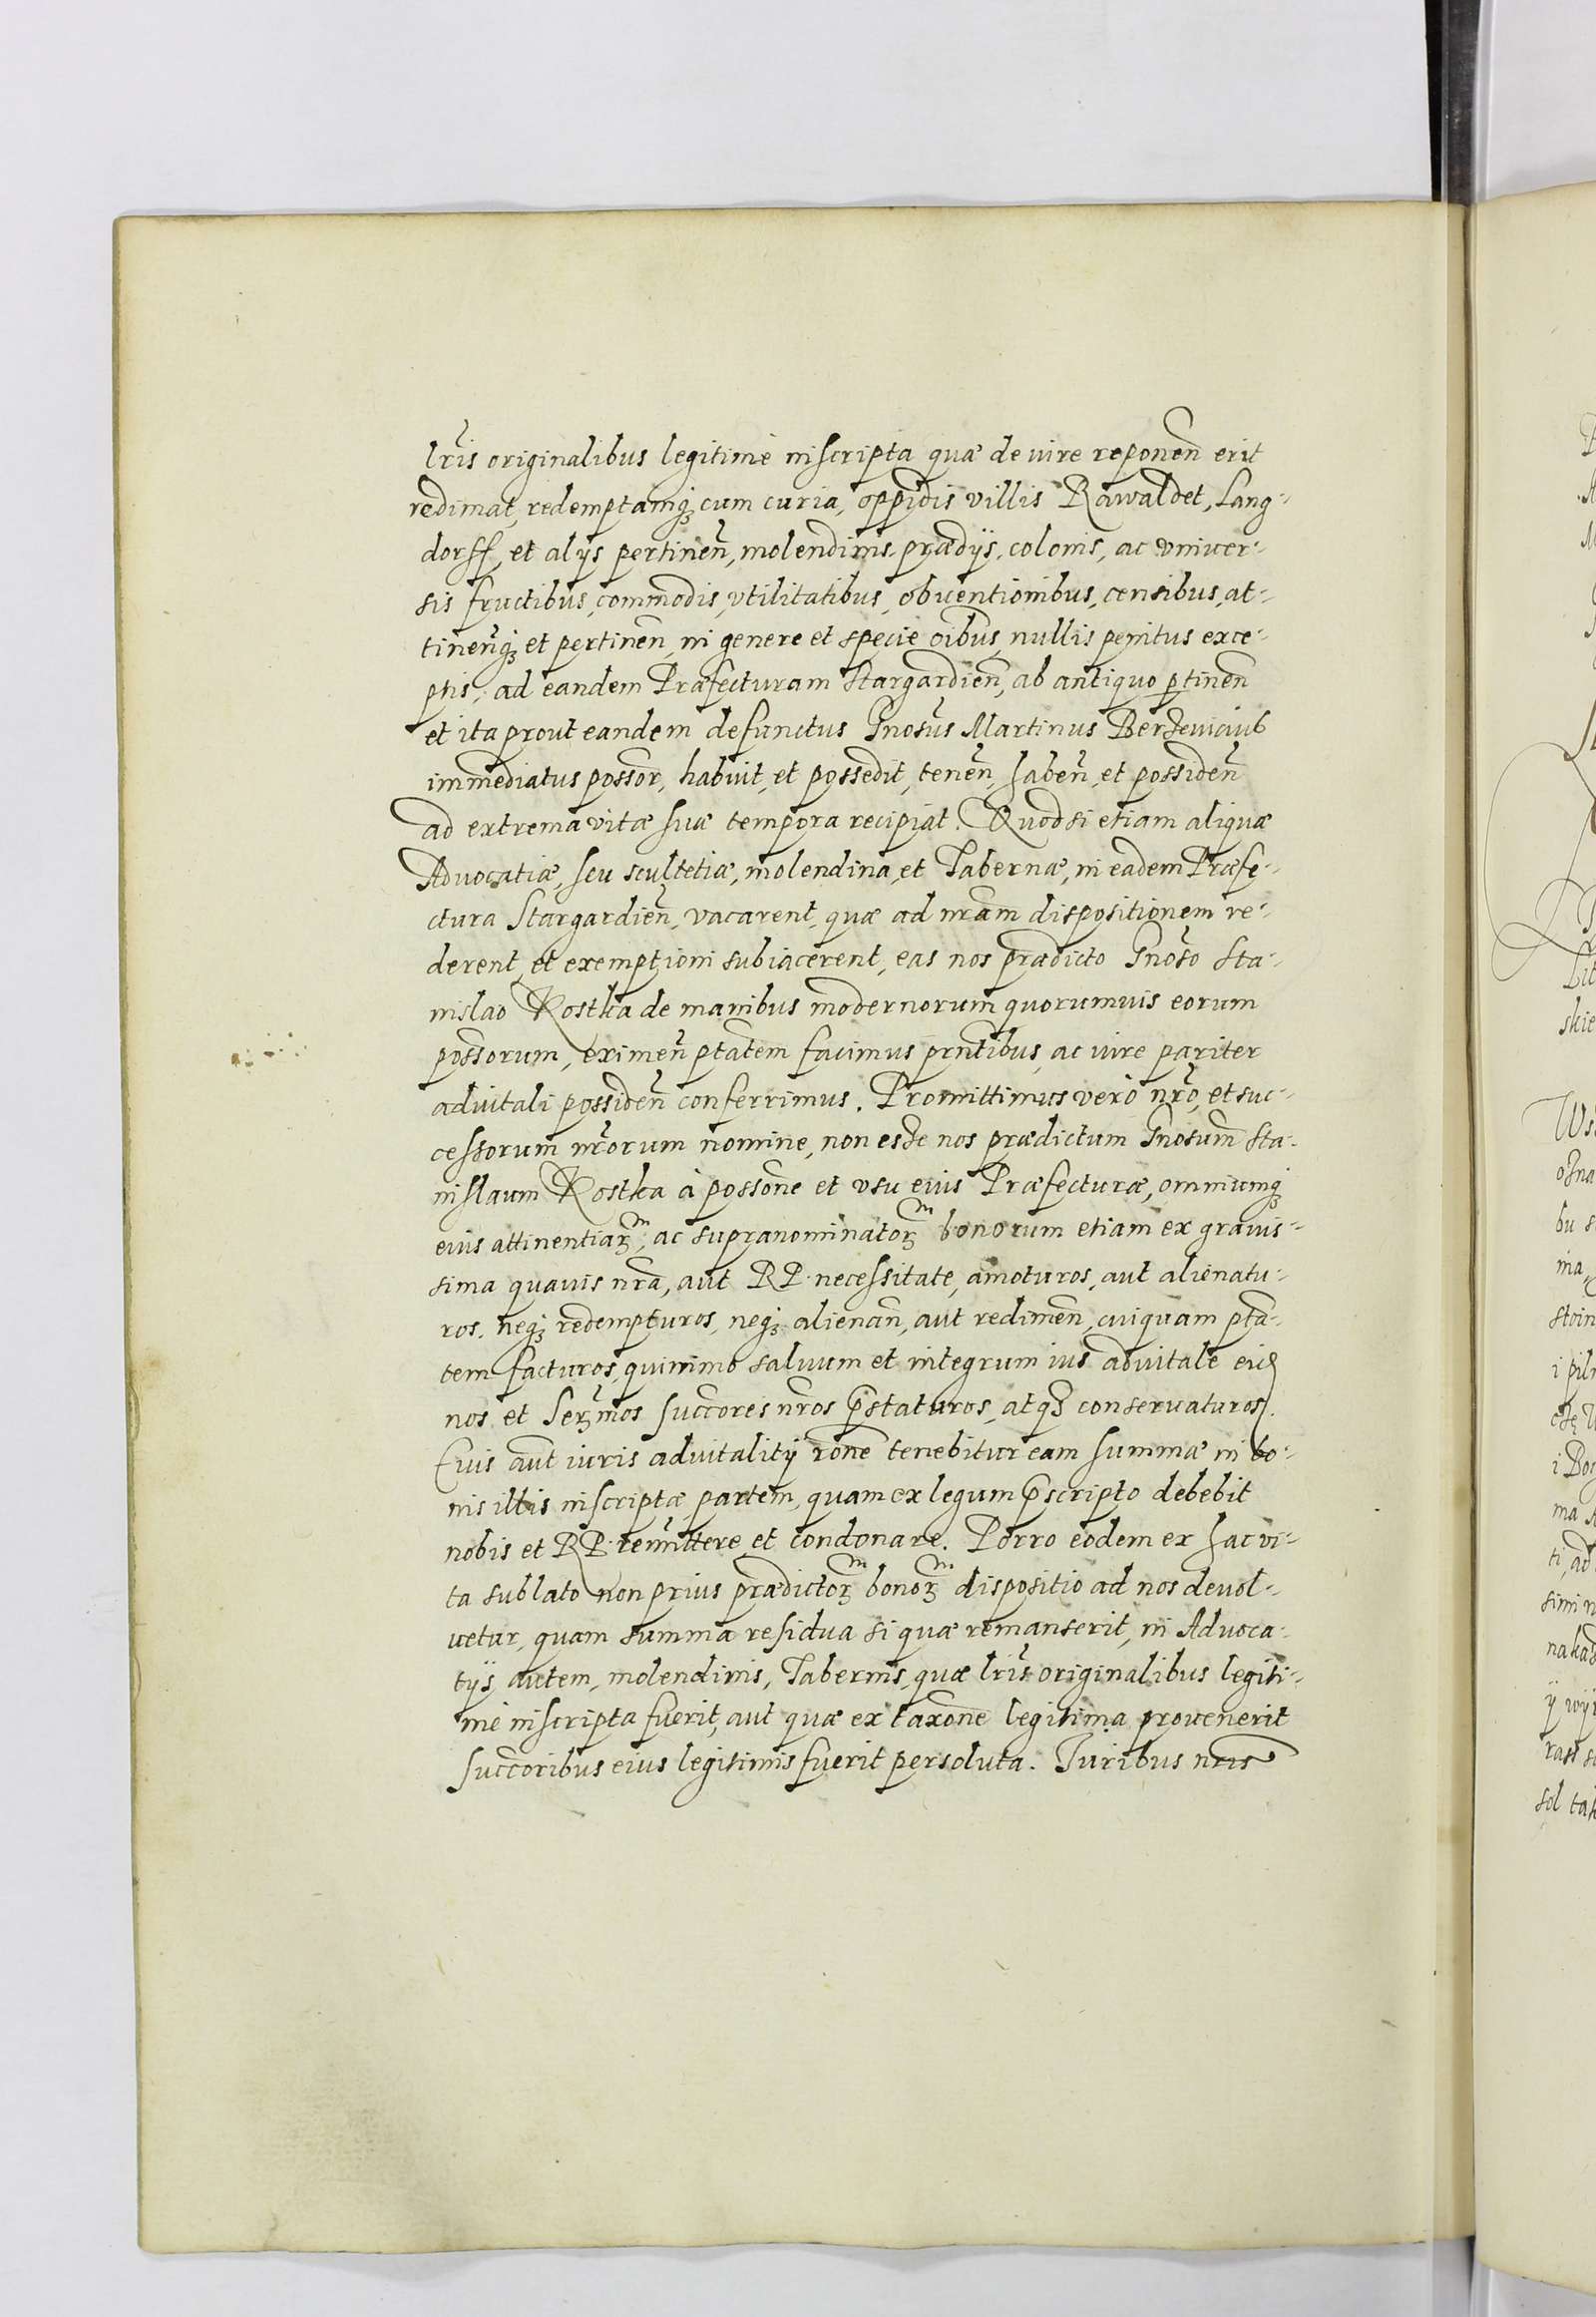 lr̃is originalibus legitimè inscripta quæ de iure reponen̄ erit
redimat, redemptamq̃ cum curia, oppidis villis Rawaldet, Lang-
dorff, et alijs pertinen̄, molendinis, prædijs, colonis, ac vniver-
sis fructibus, commodis, vtilitatibus, obventionibus, censibus, at-
tinen̄q̃ et pertinen̄, in genere et specie oibus, nullis penitus exce-
ptis, ad eandem Præfecturam Stargardien̄, ab antiquo ptinen̄
et ita prout eandem defunctus Gnosus Martinus Berzeuicius
immediatus possor, habuit, et possedit, tenen̄, haben̄, et possiden̄
ad extrema vitæ suæ tempora recipiat. Quodsi etiam aliquæ
Aduocatiæ, seu scultetiæ, molendina, et Tabernæ, in eadem Præfe-
ctura Stargardien̄, vacarent, quæ ad nram dispositionem re-
derent, et exemptioni subiacerent, eas nos prædicto Gnoso Sta-
nislao Kostka de manibus modernorum quorumuis eorum
possorum, eximen̄ ptatem facimus prntibus, ac iure pariter
aduitali possiden̄ conferrimus. Promittimus verò nro, et suc-
cessorum nrorum nomine, non esse nos prædictum Gnosum Sta-
nislaum Kostka à possone et vsu eius Præfecturæ, omniumq̃
eius attinentiarm, ac supranominatorm bonorum etiam ex grauis-
sima quauis nra, aut RP. necessitate, amoturos, aut alienatu-
ros, neq̃ redempturos, neq̃ alienan̄, aut redimen̄, cuiquam pta-
tem facturos, quinimo saluum et integrum ius aduitale eius
nos et Sermos succores nros p̄staturos, atq̃ conseruaturos.
Cuis aut iuris aduitalitij rone tenebitur eam summæ in bo-
nis illis inscriptæ partem, quam ex legum p̄scripto debebit
nobis et RP. remittere et condonare. Porro eodem ex hac vi-
ta sublato non prius prædictorm bonorm dispositio ad nos devol-
uetur, quam summa residua si quæ remanserit, in Aduoca-
tijs autem, molendinis, Tabernis, quæ lris originalibus legiti-
mè inscripta fuerit, aut quæ ex taxone legitima prouenerit
succoribus eius legitimis fuerit persoluta. Juribus nris